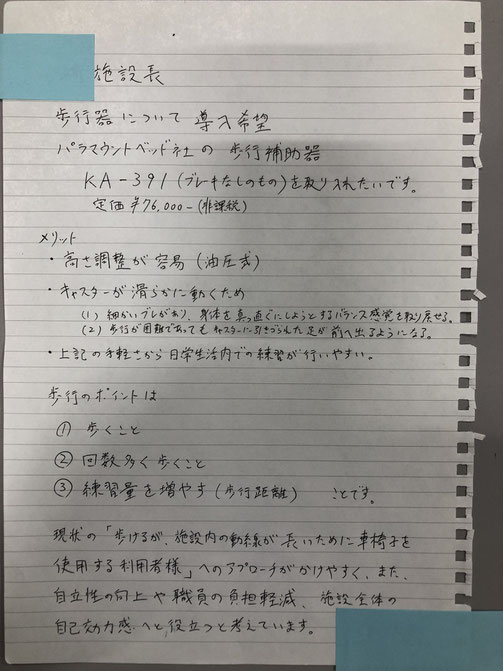 施設長
歩行器について 導入希望
パラマウントベッド社の 歩行補助器
KA-391(ブレーキなしのもの)を取り入れたいです。
定価 ¥76,000-(非課税)
メリット
・高さ調整が容易(油圧式)
・キャスターが滑らかに動くため
(1) 細かいブレがあり、身体を真っ直ぐにしようとするバランス感覚を取り戻せる。
(2) 歩行が困難であってもキャスターに引きづられた足が前へ出るようになる。
・上記の手軽さから日常生活内での練習が行いやすい。
歩行のポイントは
① 歩くこと
② 回数多く歩くこと
③ 練習量を増やす(歩行距離) ことです。
現状の「歩けるが、施設内の動線が長いために車椅子を
使用する利用者様」へのアプローチがかけやすく、また、
自立性の向上や職員の負担軽減、施設全体の
自己効力感へと役立つと考えています。